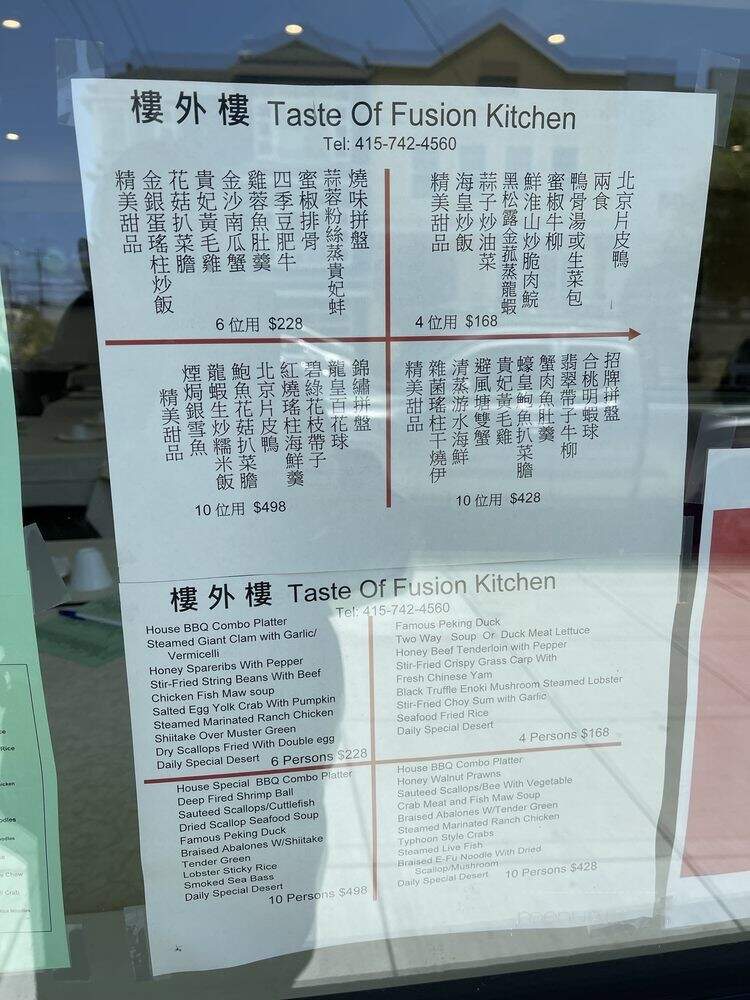 樓外樓 Taste Of Fusion Kitchen
Tel: 415-742-4560
燒味拼盤
蒜蓉粉絲蒸貴妃蚌
蜜椒排骨
四季豆肥牛
雞蓉魚肚羹
金沙南瓜蟹
貴妃黃毛雞
花菇扒菜膽
金銀蛋瑤柱炒飯
精美甜品
6 位用 $228
北京片皮鴨
兩食
鴨骨湯或生菜包
蜜椒牛柳
鮮淮山炒脆肉鯇
黑松露金菰蒸龍蝦
蒜子炒油菜
海皇炒飯
精美甜品
4 位用 $168
錦繡拼盤
龍皇百花球
碧綠花枝帶子
紅燒瑤柱海鮮羹
北京片皮鴨
鮑魚花菇扒菜膽
龍蝦生炒糯米飯
煙焗銀雪魚
精美甜品
10 位用 $498
招牌拼盤
合桃明蝦球
翡翠帶子牛柳
蟹肉魚肚羹
蠔皇鮑魚扒菜膽
貴妃黃毛雞
避風塘雙蟹
清蒸游水海鮮
雜菌瑤柱干燒伊
精美甜品
10 位用 $428
樓外樓 Taste Of Fusion Kitchen
Tel: 415-742-4560
House BBQ Combo Platter
Steamed Giant Clam with Garlic/
Vermicelli
Honey Spareribs With Pepper
Stir-Fried String Beans With Beef
Chicken Fish Maw soup
Salted Egg Yolk Crab With Pumpkin
Steamed Marinated Ranch Chicken
Shiitake Over Muster Green
Dry Scallops Fried With Double egg
Daily Special Desert 6 Persons $228
Famous Peking Duck
Two Way Soup Or Duck Meat Lettuce
Honey Beef Tenderloin with Pepper
Stir-Fried Crispy Grass Carp With
Fresh Chinese Yam
Black Truffle Enoki Mushroom Steamed Lobster
Stir-Fried Choy Sum with Garlic
Seafood Fried Rice
Daily Special Desert
4 Persons $168
House Special BBQ Combo Platter
Deep Fired Shrimp Ball
Sauteed Scallops/Cuttlefish
Dried Scallop Seafood Soup
Famous Peking Duck
Braised Abalones W/Shiitake
Tender Green
Lobster Sticky Rice
Smoked Sea Bass
Daily Special Desert
10 Persons $498
House BBQ Combo Platter
Honey Walnut Prawns
Sauteed Scallops/Bee With Vegetable
Crab Meat and Fish Maw Soup
Braised Abalones W/Tender Green
Steamed Marinated Ranch Chicken
Typhoon Style Crabs
Steamed Live Fish
Braised E-Fu Noodle With Dried
Scallop/Mushroom
Daily Special Desert 10 Persons $428
Rice